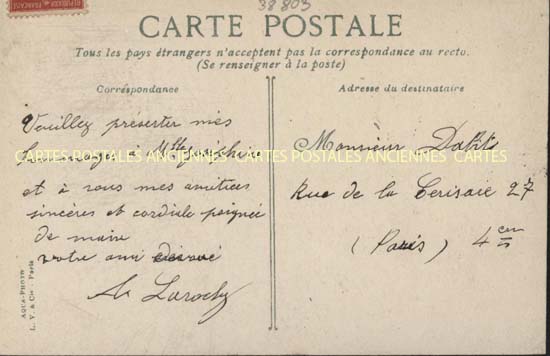 38803
CARTE POSTALE
Tous les pays étrangers n'acceptent pas la correspondance au recto.
(Se renseigner à la poste)
Correspondance
Adresse du destinataire
Veuillez présenter mes
hommages à Mlle Joséphine
et à vous mes amitiés
sincères et cordiale poignée
de main
votre ami
A Laroche
Monsieur
Rue de la Cerisaie 27
(Paris) 4em
CARTES POSTALES ANCIENNES CARTES POSTALES ANCIENNES CARTES
AQUA-PHOTO
L. V. & Cie - Paris